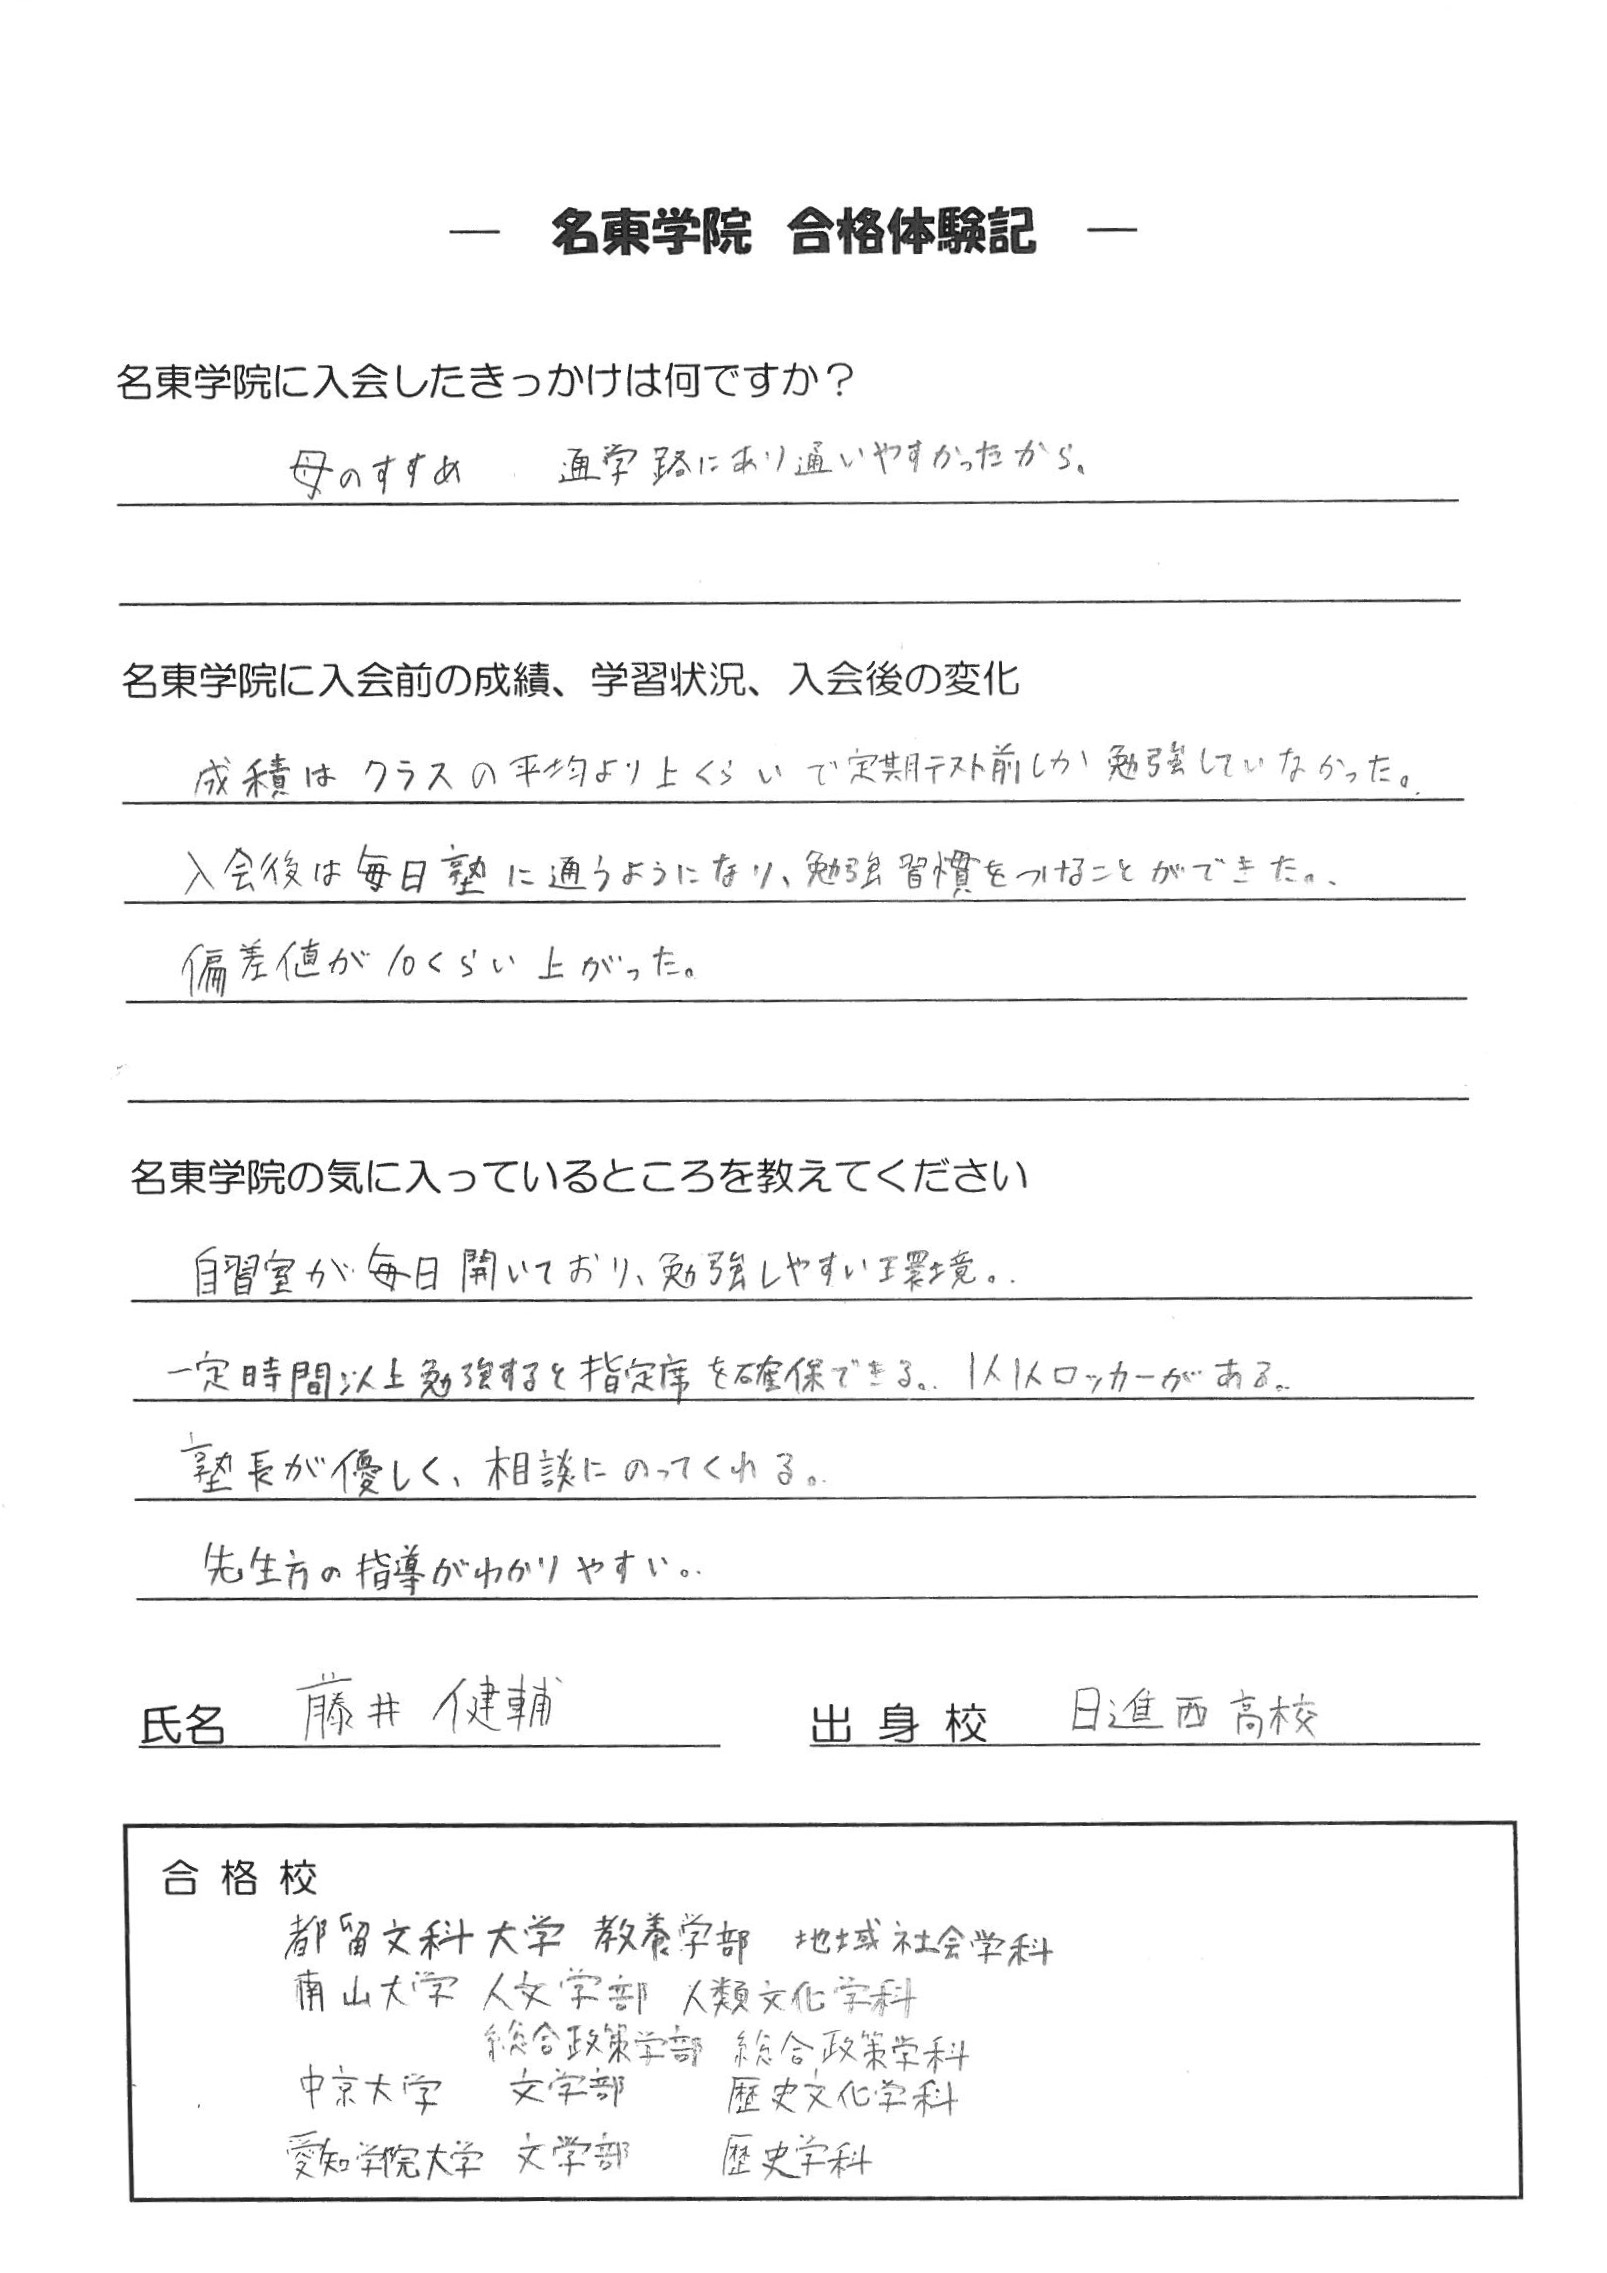 ― 名東学院 合格体験記 ―
名東学院に入会したきっかけは何ですか？
母のすすめ 通学路にあり通いやすかったから。
名東学院に入会前の成績、学習状況、入会後の変化
成積はクラスの平均より上くらいで定期テスト前しか勉強していなかった。
入会後は毎日塾に通うようになり、勉強習慣をつけることができた。
偏差値が10くらい上がった。
名東学院の気に入っているところを教えてください
自習室が毎日開いており、勉強しやすい環境。
一定時間以上勉強すると指定席を確保できる。1人1人ロッカーがある。
塾長が優しく、相談にのってくれる。
先生方の指導がわかりやすい。
氏名 藤井 健輔 出身校 日進西高校
合格校
都留文科大学 教養学部 地域社会学科
南山大学 人文学部 人類文化学科
総合政策学部 総合政策学科
中京大学 文学部 歴史文化学科
愛知学院大学 文学部 歴史学科